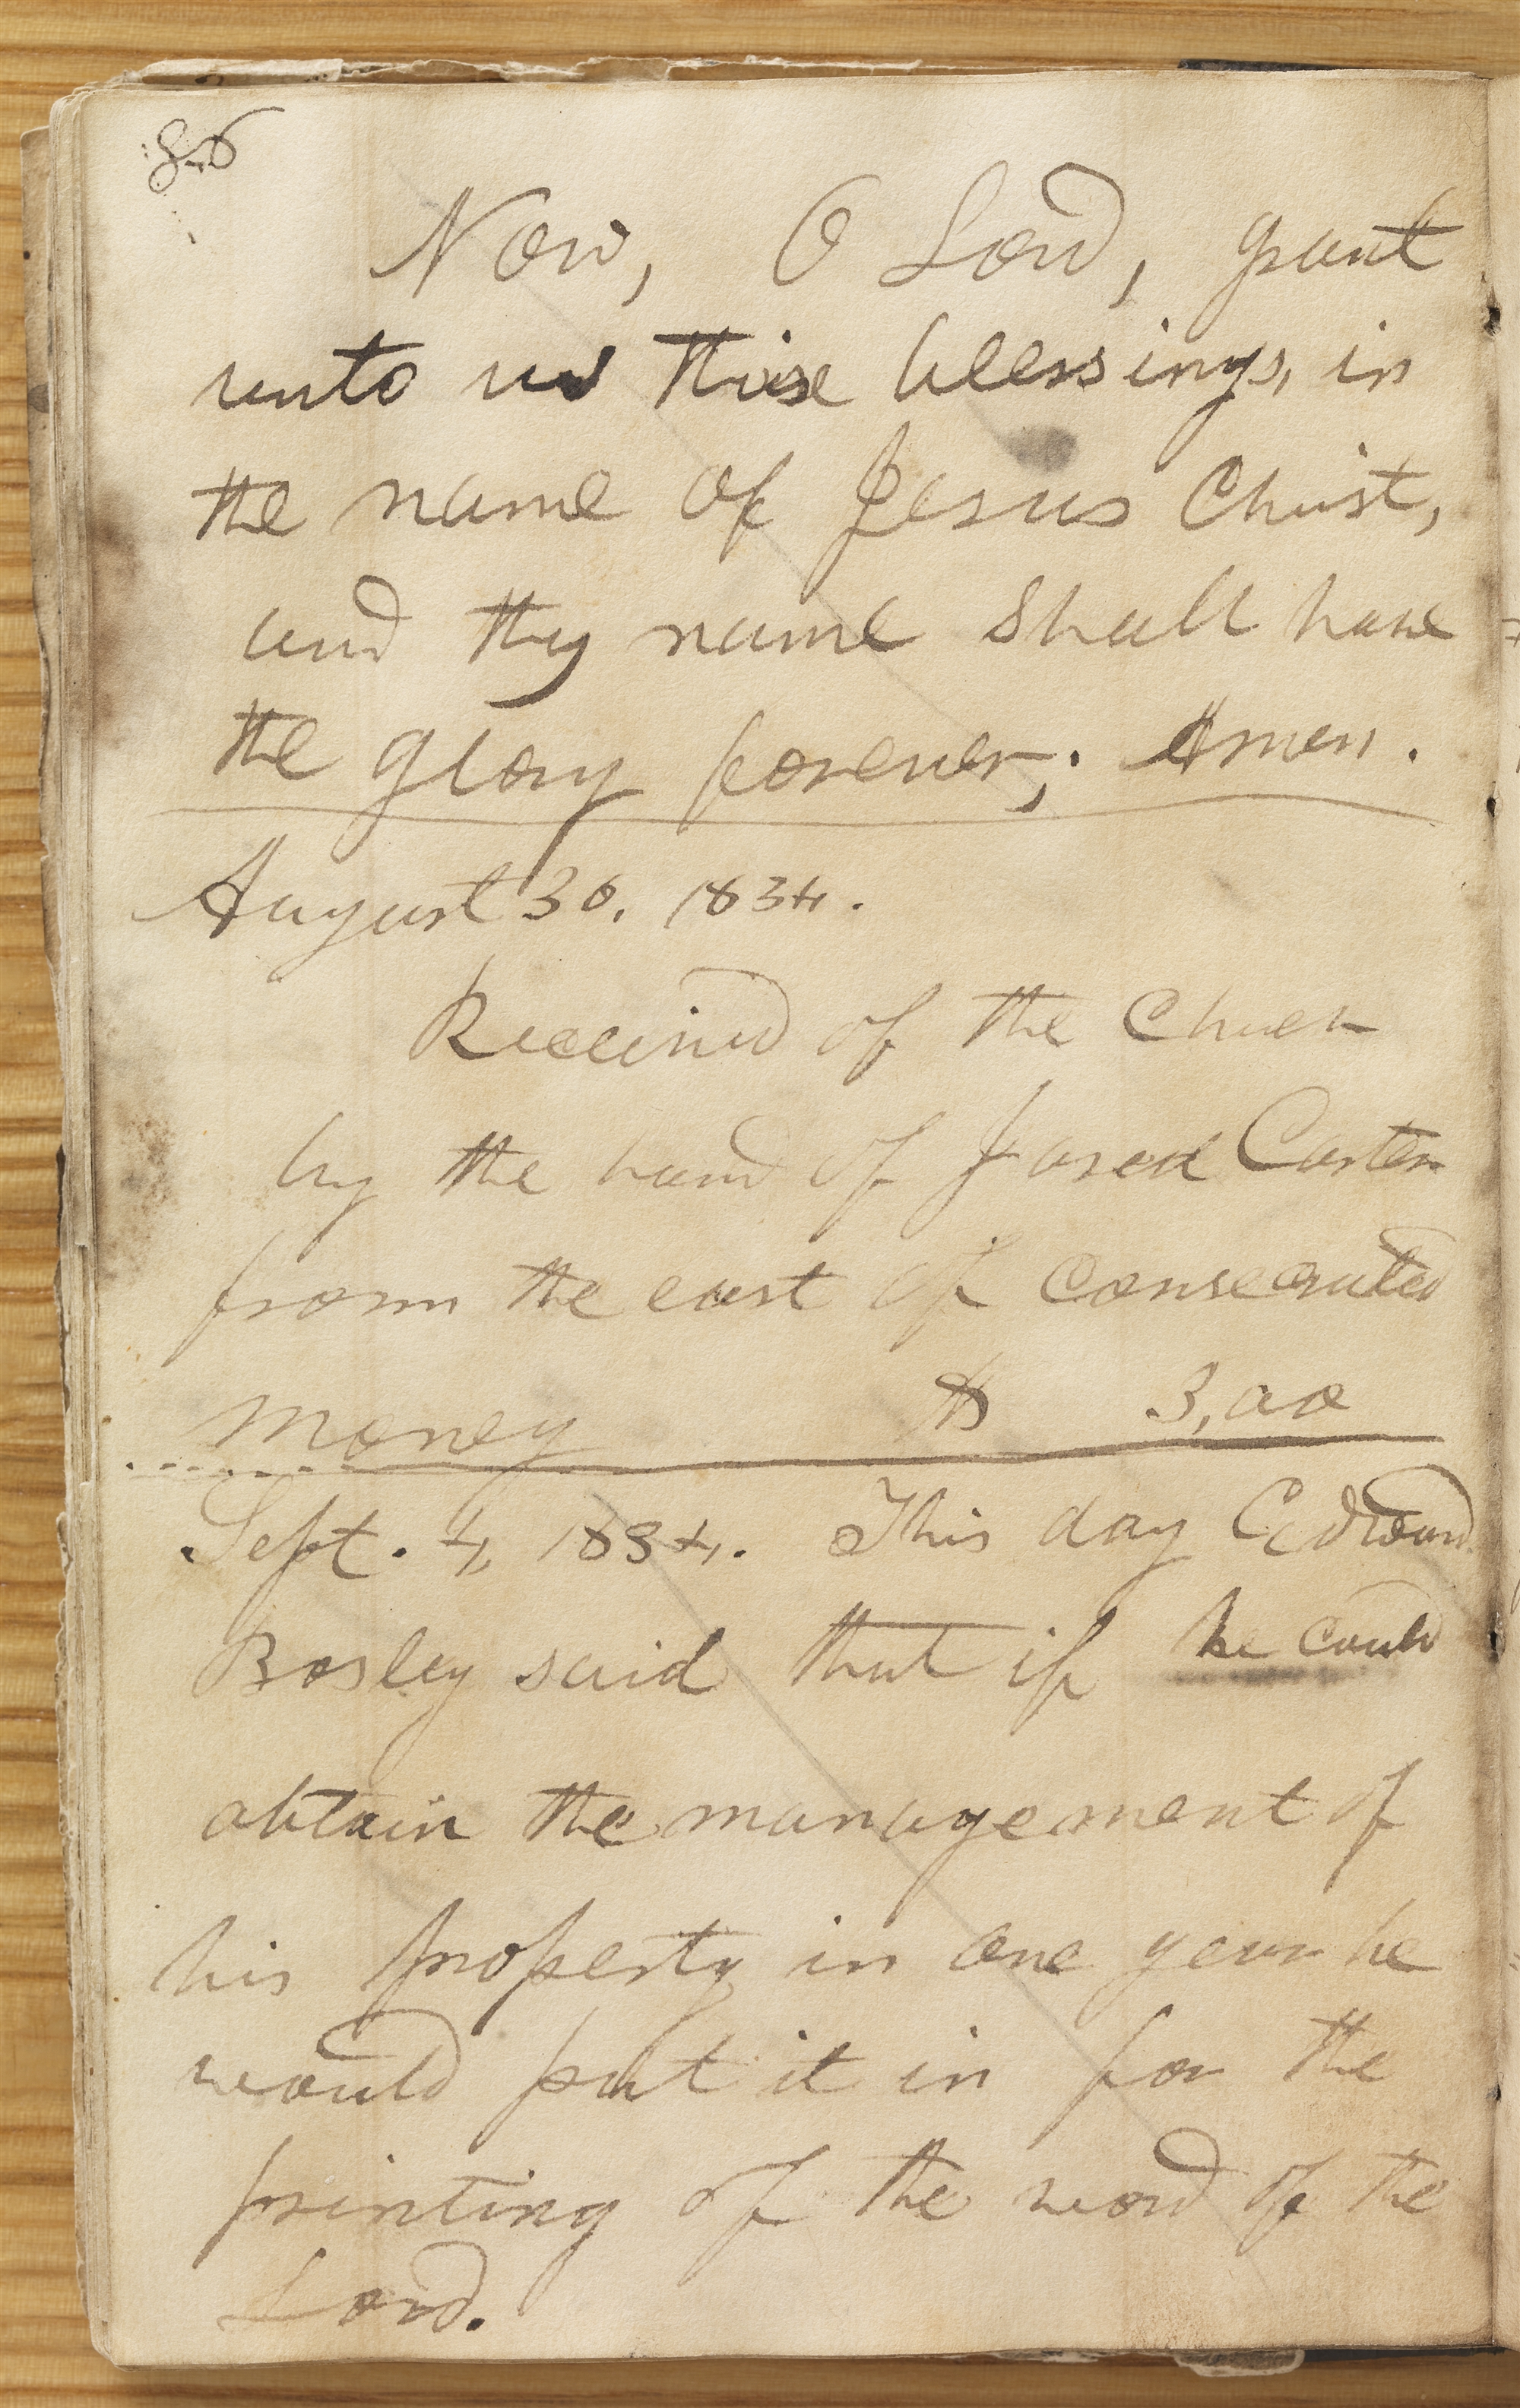 86
Now, O Lord, grant
unto us these blessings, in
the name of Jesus Christ,
and thy name shall have
the glory forever; Amen.
August 30, 1834.
Received of the Church
by the hand of Jared Carter
from the east of consecrated
money $ 3,00
Sept. 4, 1834. This day Edward
Bosley said that if he could
obtain the management of
his property in one year he
would put it in for the
printing of the word of the
Lord.